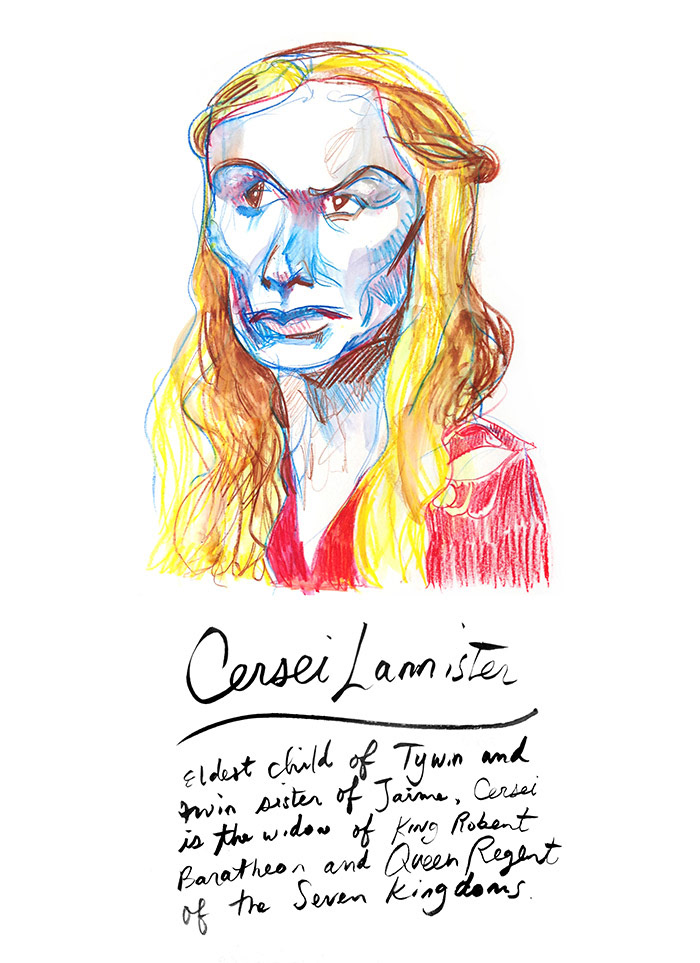 Cersei Lannister
Eldest child of Tywin and
twin sister of Jaime, Cersei
is the widow of King Robert
Baratheon and Queen Regent
of the Seven Kingdoms.